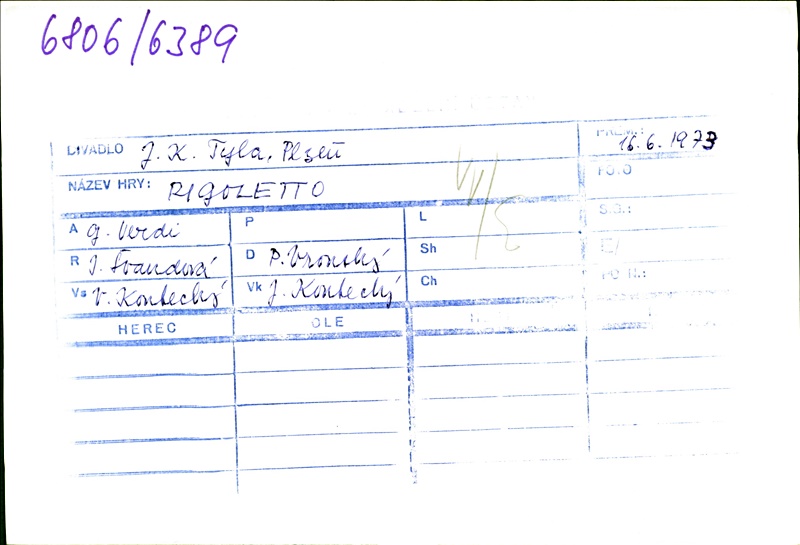 6806/6389
DIVADLO J. K. Tyla, Plzeň PREM.: 16.6.1973
NÁZEV HRY: RIGOLETTO FOTO
A G. Verdi P L S.G.:
R I. Švandová D P. Vronský Sh
Vs V. Kontecký Vk J. Kontecký Ch
HEREC OLE